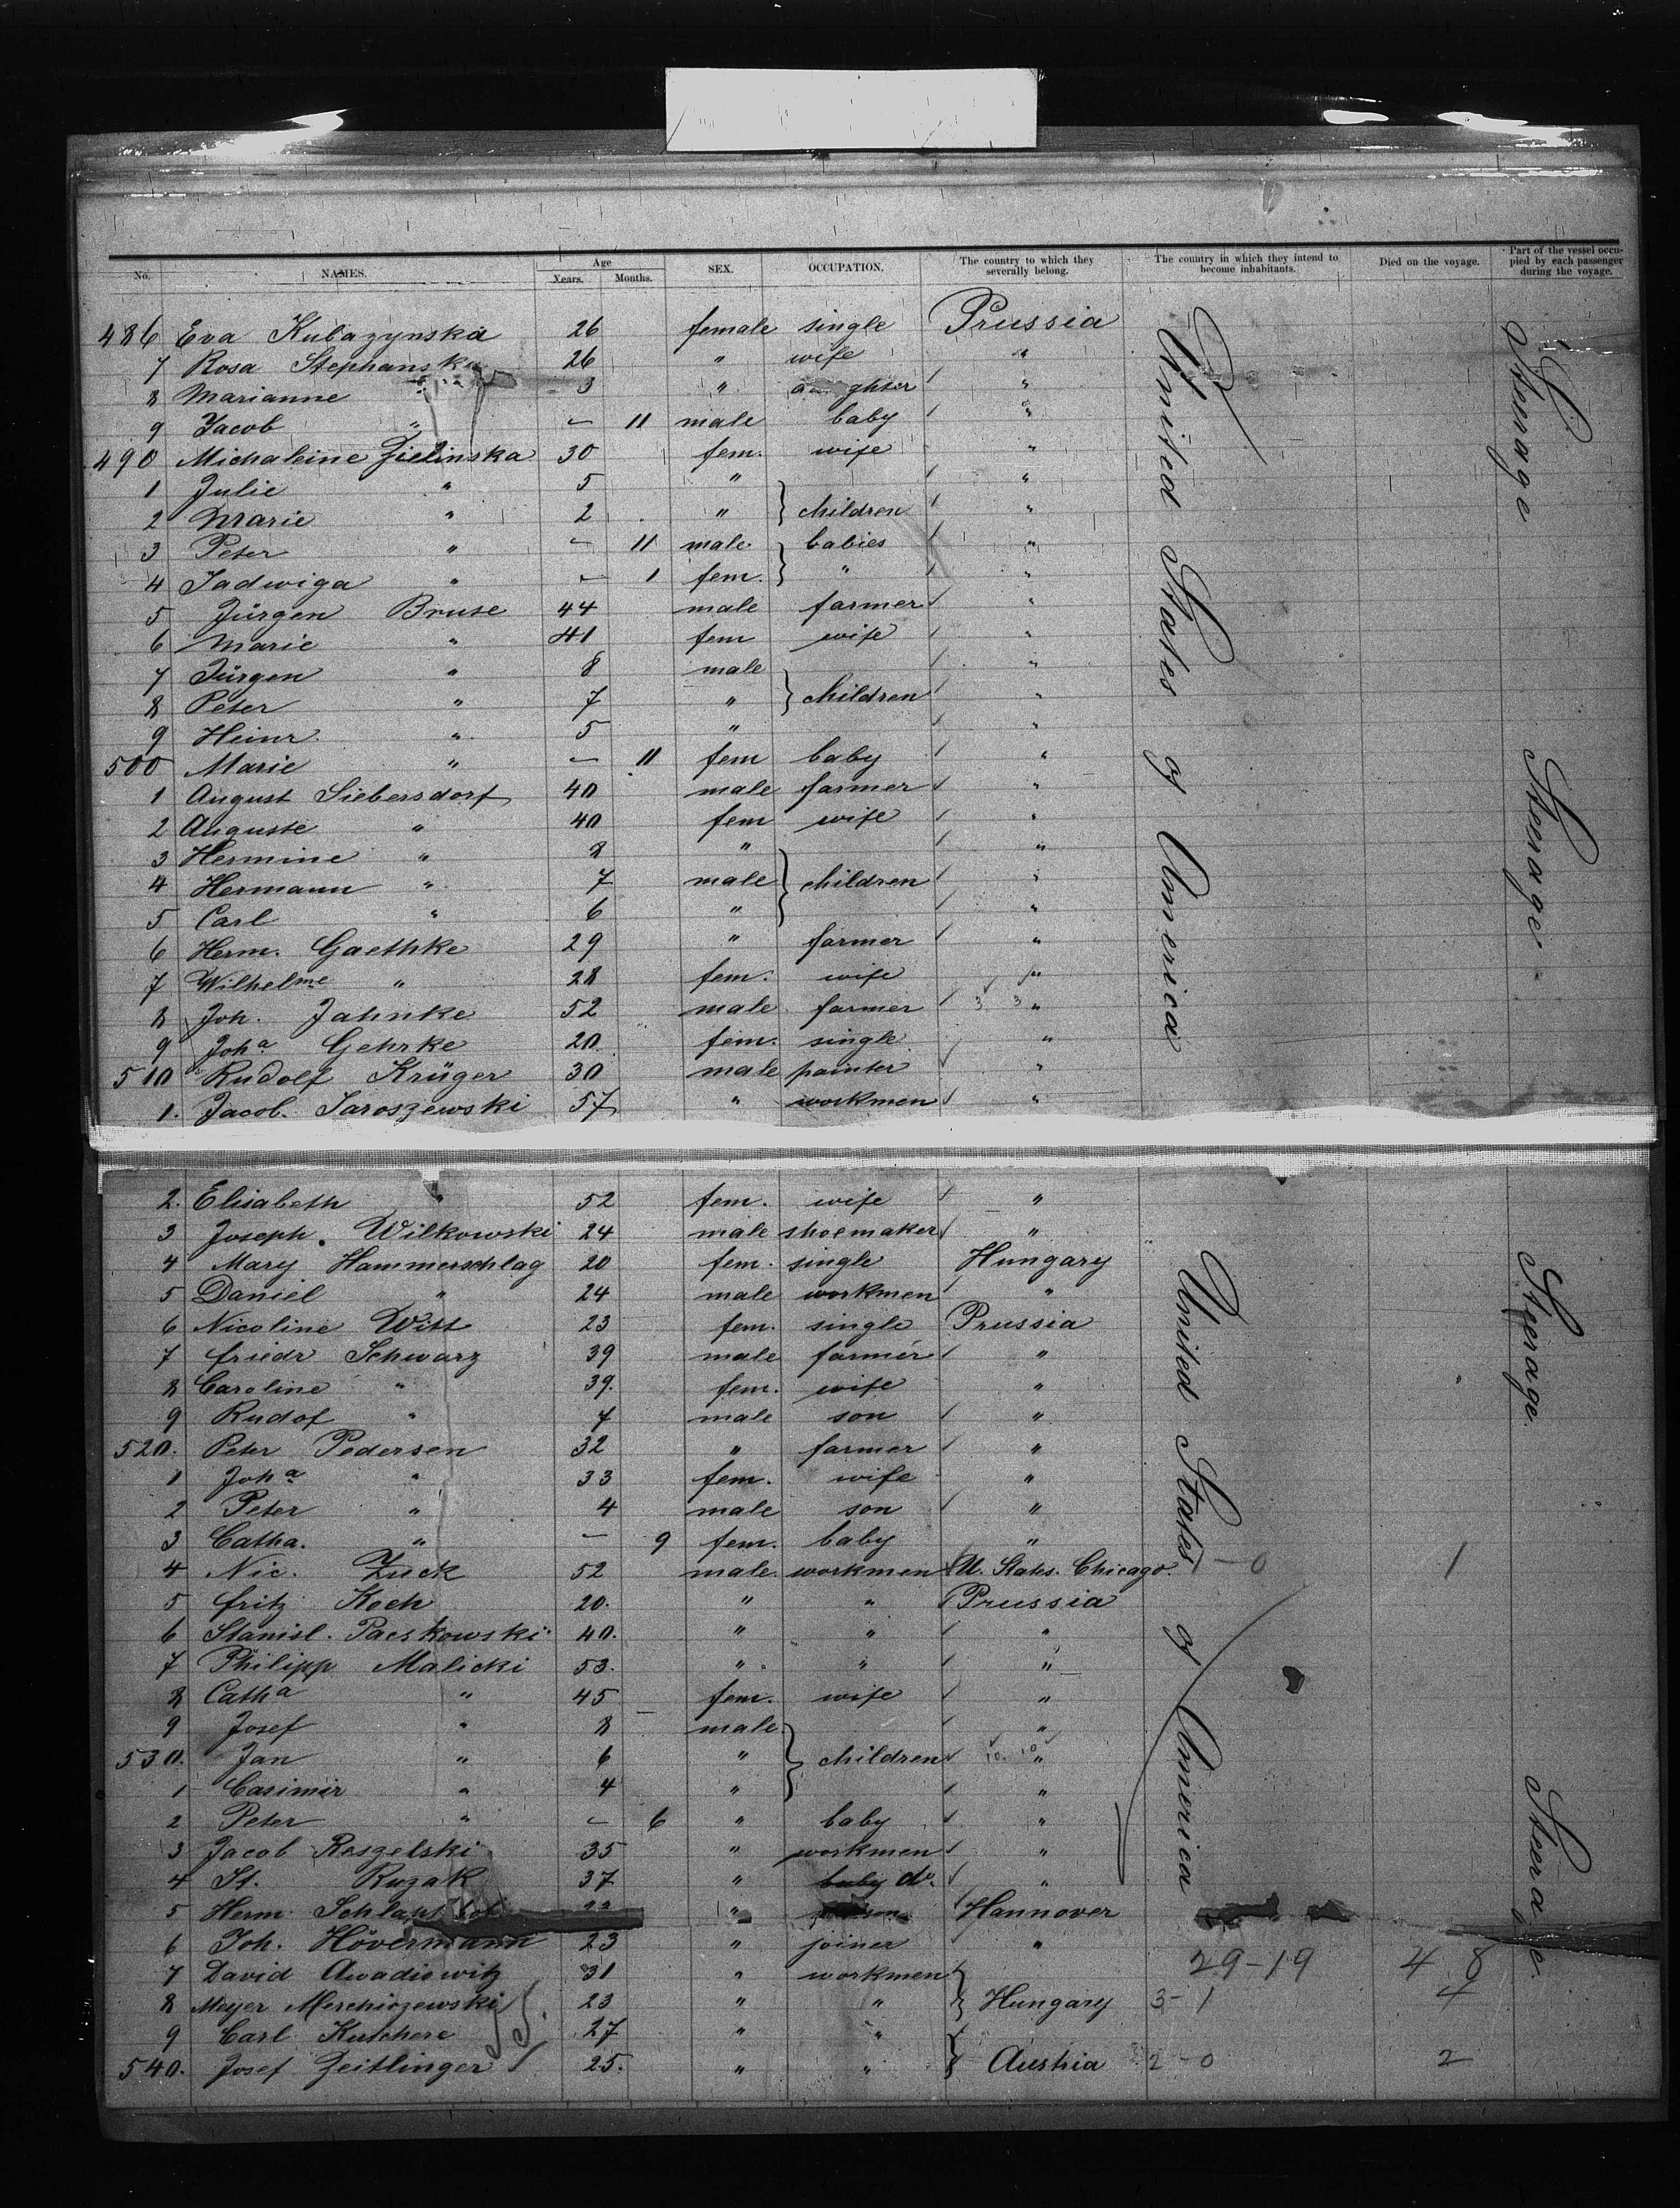 No. NAMES. Age Years. Months. SEX. OCCUPATION. The country to which they severally belong. The country in which they intend to become inhabitants. Died on the voyage. Part of the vessel occupied by each passenger during the voyage.
486 Eva Kubazynska 26 female single Prussia
7 Rosa Stephanska 26 " wife "
8 Marianne " 3 " daughter "
9 Jacob " — 11 male baby "
490 Michaleine Zielinska 30 fem. wife "
1 Julie " 5 " "
2 Marie " 2 " children "
3 Peter " — 11 male babies "
4 Jadwiga " — 1 fem. " "
5 Jürgen Bruse 44 male farmer "
6 Marie " 41 fem wife "
7 Jürgen " 8 male "
8 Peter " 7 " children "
9 Heinr. " 5 " "
500 Marie " — 11 fem baby "
1 August Siebersdorf 40 male farmer "
2 Auguste " 40 fem wife "
3 Hermine " 8 " "
4 Hermann " 7 male children "
5 Carl " 6 " "
6 Herm. Gaethke 29 " farmer "
7 Wilhelme " 28 fem. wife "
8 Joh. Jahnke 52 male farmer 3 3 "
9 Joha Gehrke 20 fem. single "
510 Rudolf Krüger 30 male painter "
1. Jacob. Jaroszewski 57 " workmen "
United States of America
Steerage
Steerage
2. Elisabeth " 52 fem. wife "
3 Joseph. Wilkowski 24 male shoemaker "
4 Mary Hammerschlag 20 fem. single Hungary
5 Daniel " 24 male workmen "
6 Nicoline Witt 23 fem. single Prussia
7 Friedr Schwarz 39 male farmer "
8 Caroline " 39. fem. wife "
9 Rudof " 7 male son "
520. Peter Pedersen 32 " farmer "
1 Joha " 33 fem. wife "
2 Peter " 4 male son "
3 Catha. " — 9 fem. baby "
4 Nic. Zuck 52 male. workmen U. States. Chicago. - 0 1
5 Fritz Koch 20. " " Prussia
6 Stanisl. Paeskowski 40. " " "
7 Philipp Malicki 53. " " "
8 Catha " 45 fem. wife "
9 Josef " 8 male. "
530. Jan " 6 " children 10. 10 "
1 Casimir " 4 " "
2 Peter " — 6 " baby "
3 Jacob Roszelski 35 " workmen "
4 St. Ruzak 37 " baby do. "
5 Herm. 23 " Hannover
6 Joh. Hövermann 23 " joiner "
7 David Awadiowitz 31 " workmen 29-19 4 8
8 Mayer Merchiozewski 23 " " Hungary 3-1 4
9 Carl Kuschere 27 " "
540. Josef Zeitlinger 25. " " Austria 2-0 2
United States of America
Steerage.
Steerage.